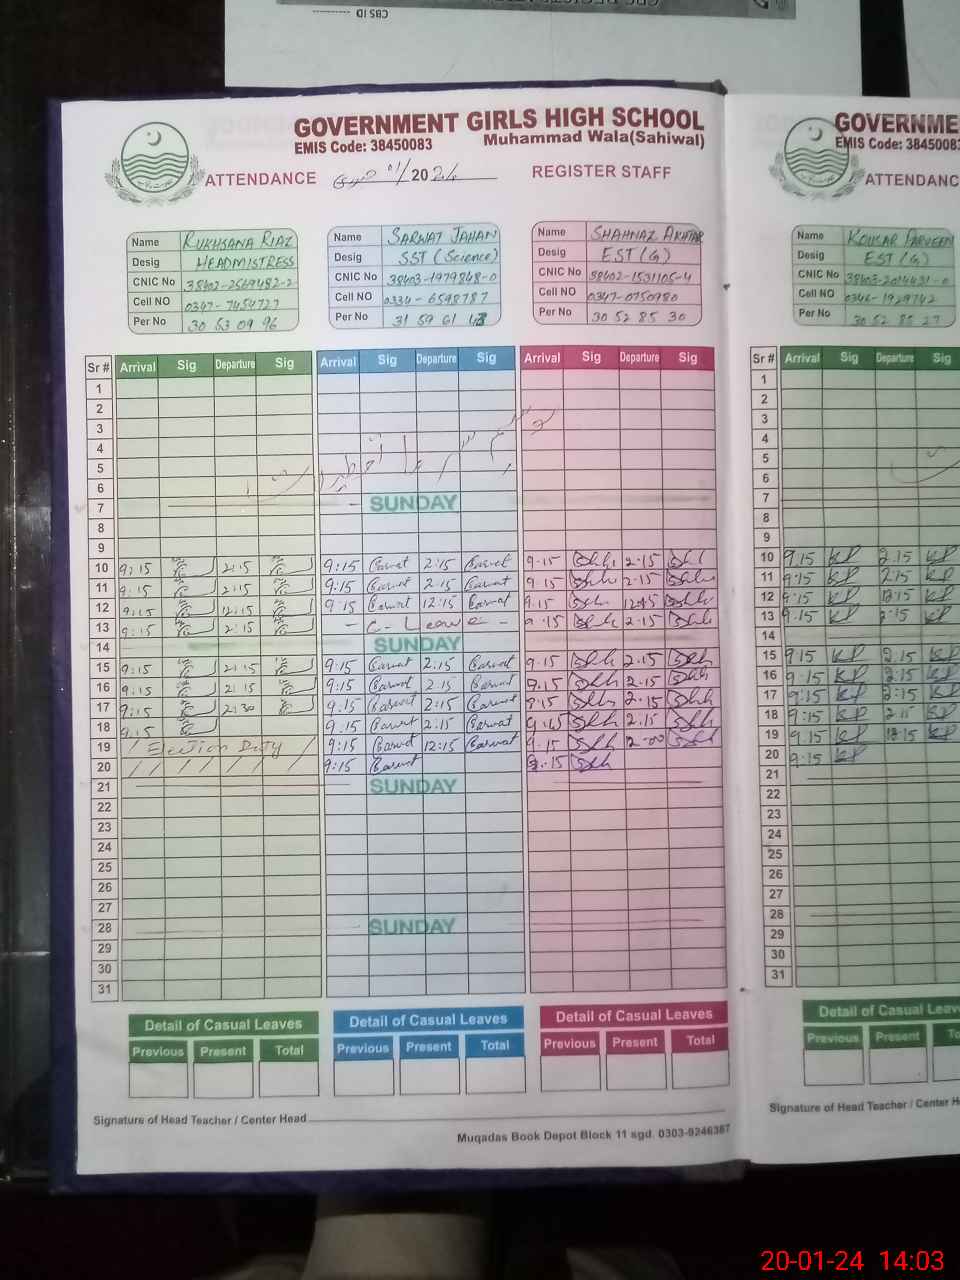 CBS ID
GOVERNMENT GIRLS HIGH SCHOOL
EMIS Code: 38450083 Muhammad Wala(Sahiwal)
ATTENDANCE 01/2024 REGISTER STAFF
Name RUKHSANA RIAZ
Desig HEADMISTRESS
CNIC No 38402-2569482-2
Cell NO 0347-7454727
Per No 30 53 09 96
Name SARWAT JAHAN
Desig SST (Science)
CNIC No 38403-1979848-0
Cell NO 0334-6598787
Per No 31 59 61
Name SHAHNAZ AKHTAR
Desig EST (G)
CNIC No 38402-1531105-4
Cell NO 0347-0750980
Per No 30 52 85 30
Sr # Arrival Sig Departure Sig Arrival Sig Departure Sig Arrival Sig Departure Sig
1
2
3
4
5
6
7 SUNDAY
8
9
10 9:15 2:15 9:15 Sarwat 2:15 Sarwat 9.15 Shh 2.15 Shh
11 9:15 2:15 9:15 Sarwat 2.15 Sarwat 9.15 Shh 2.15 Shh
12 9:15 12:15 9:15 Sarwat 12:15 Sarwat 9.15 Shh 12.15 Shh
13 9:15 2:15 - C- Leave - 9.15 Shh 2.15 Shh
14 SUNDAY
15 9:15 2:15 9:15 Sarwat 2:15 Sarwat 9.15 Shh 2.15 Shh
16 9:15 2:15 9:15 Sarwat 2.15 Sarwat 9.15 Shh 2.15 Shh
17 9:15 2:30 9:15 Sarwat 2:15 Sarwat 9.15 Shh 2.15 Shh
18 9.15 9:15 Sarwat 2:15 Sarwat 9.15 Shh 2.15 Shh
19 Election Duty 9:15 Sarwat 12:15 Sarwat 9.15 Shh 2.00 Shh
20 9:15 Sarwat 9.15 Shh
21 SUNDAY
22
23
24
25
26
27
28 SUNDAY
29
30
31
Detail of Casual Leaves Detail of Casual Leaves Detail of Casual Leaves
Previous Present Total Previous Present Total Previous Present Total
Signature of Head Teacher / Center Head
Muqadas Book Depot Block 11 sgd. 0303-9246387
GOVERNME
EMIS Code: 3845008
ATTENDANC
Name KOUSAR PARVEEN
Desig EST (G)
CNIC No 38403-2014431-0
Cell NO 0346-1929742
Per No 30 52 85 27
Sr # Arrival Sig Departure Sig
1
2
3
4
5
6
7
8
9
10 9.15 KP 2.15 KP
11 9:15 KP 2.15 KP
12 9:15 KP 12:15 KP
13 9.15 KP 2:15 KP
14
15 9.15 KP 2.15 KP
16 9.15 KP 2:15 KP
17 9:15 KP 2:15 KP
18 9:15 KP 2.15 KP
19 9.15 KP 12:15 KP
20 9:15 KP
21
22
23
24
25
26
27
28
29
30
31
Detail of Casual Leav
Previous Present To
Signature of Head Teacher / Center H
20-01-24 14:03